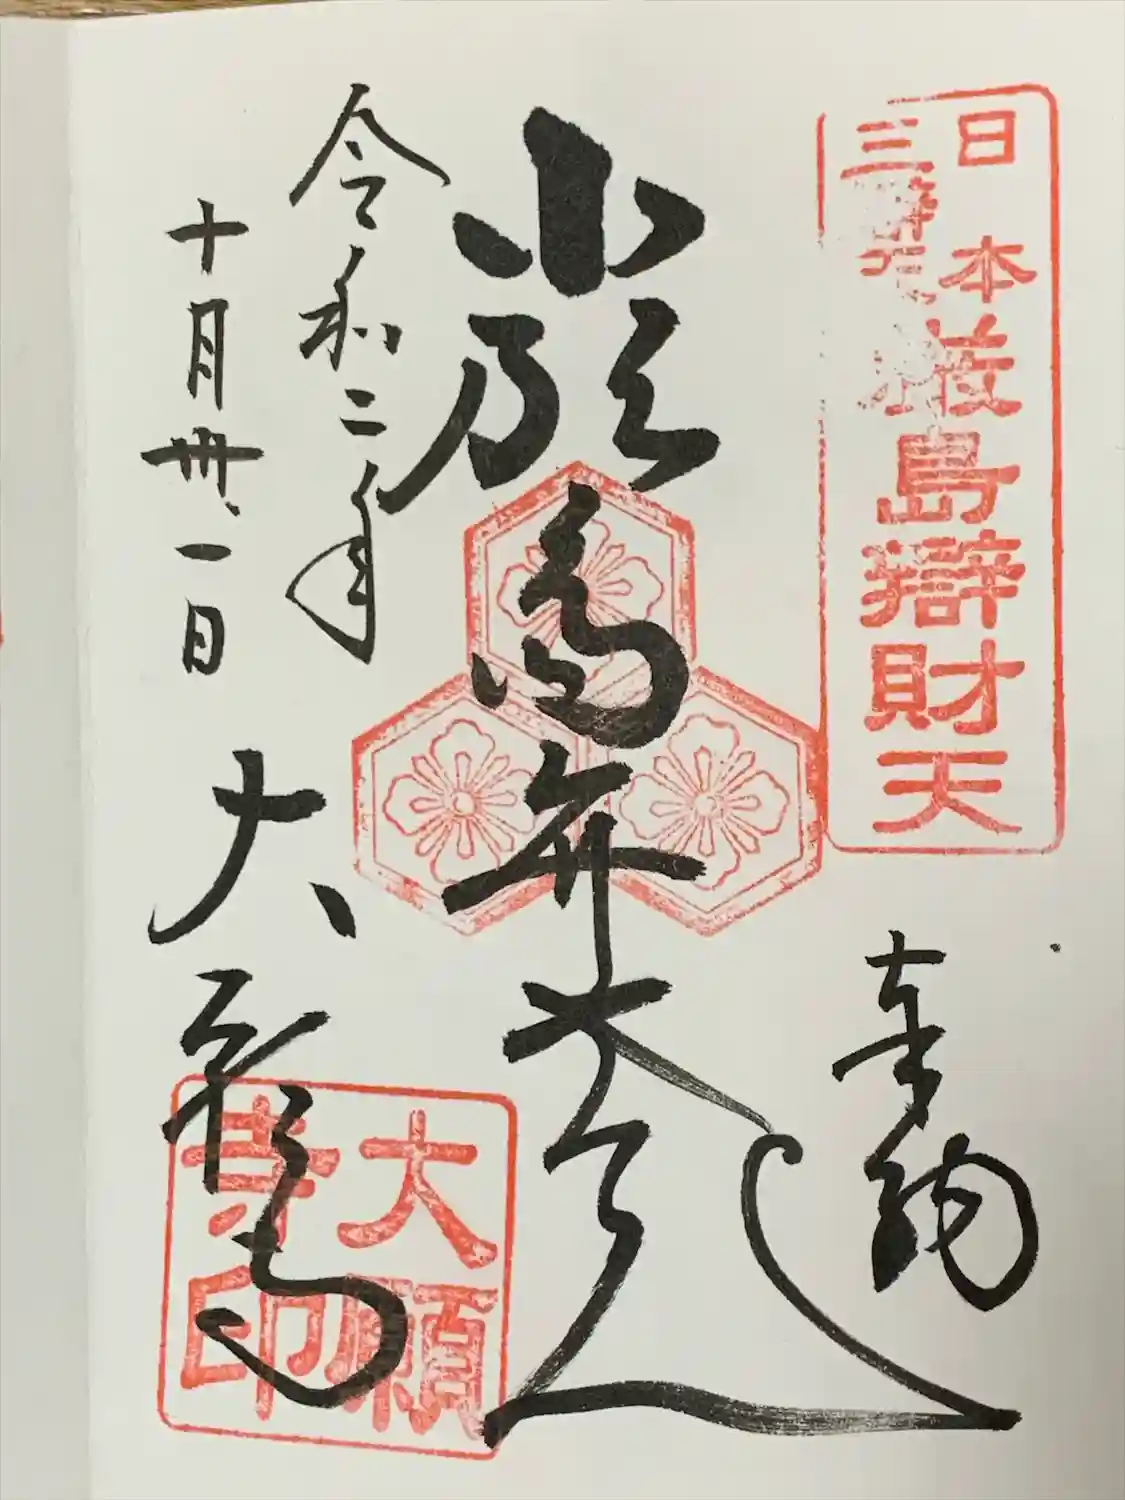 日本三辨天
厳島辯財天
奉納
厳島弁才天
令和二年
十月卅一日
大願寺
大願
寺印